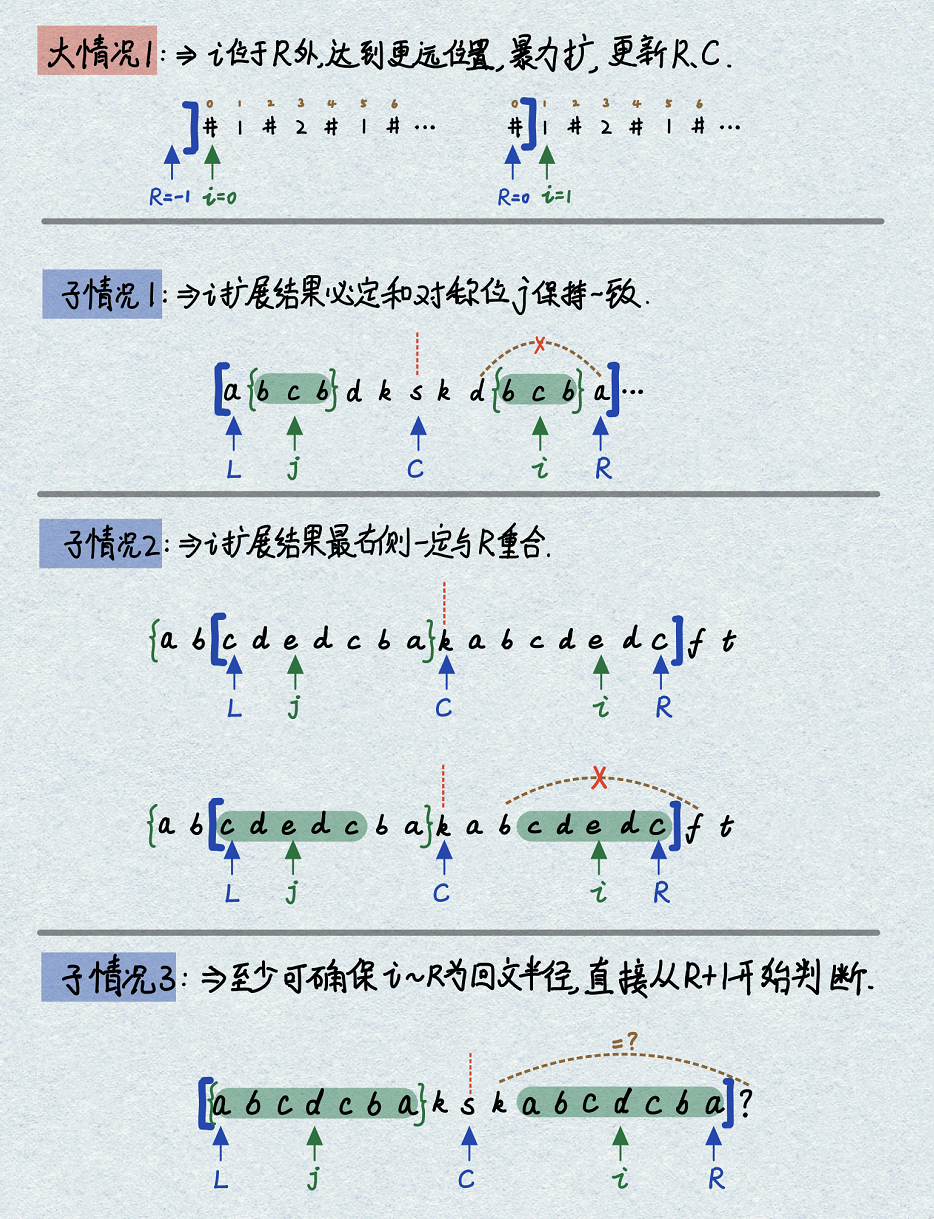 大情况1:⇒i位于R外,达到更远位置,暴力扩,更新R、C.
0 1 2 3 4 5 6
] # 1 # 2 # 1 # ...
R=-1 i=0
0 1 2 3 4 5 6
# ] 1 # 2 # 1 # ...
R=0 i=1
子情况1:⇒i扩展结果必定和对称位j保持一致.
x
[a{b c b}d k s k d{b c b}a]...
L j C i R
子情况2:⇒i扩展结果最右侧一定与R重合.
{a b[c d e d c b a}k a b c d e d c]f t
L j C i R
x
{a b[c d e d c b a}k a b c d e d c]f t
L j C i R
子情况3:⇒至少可确保i~R为回文半径,直接从R+1开始判断.
=?
[{a b c d c b a}k s k a b c d c b a]?
L j C i R